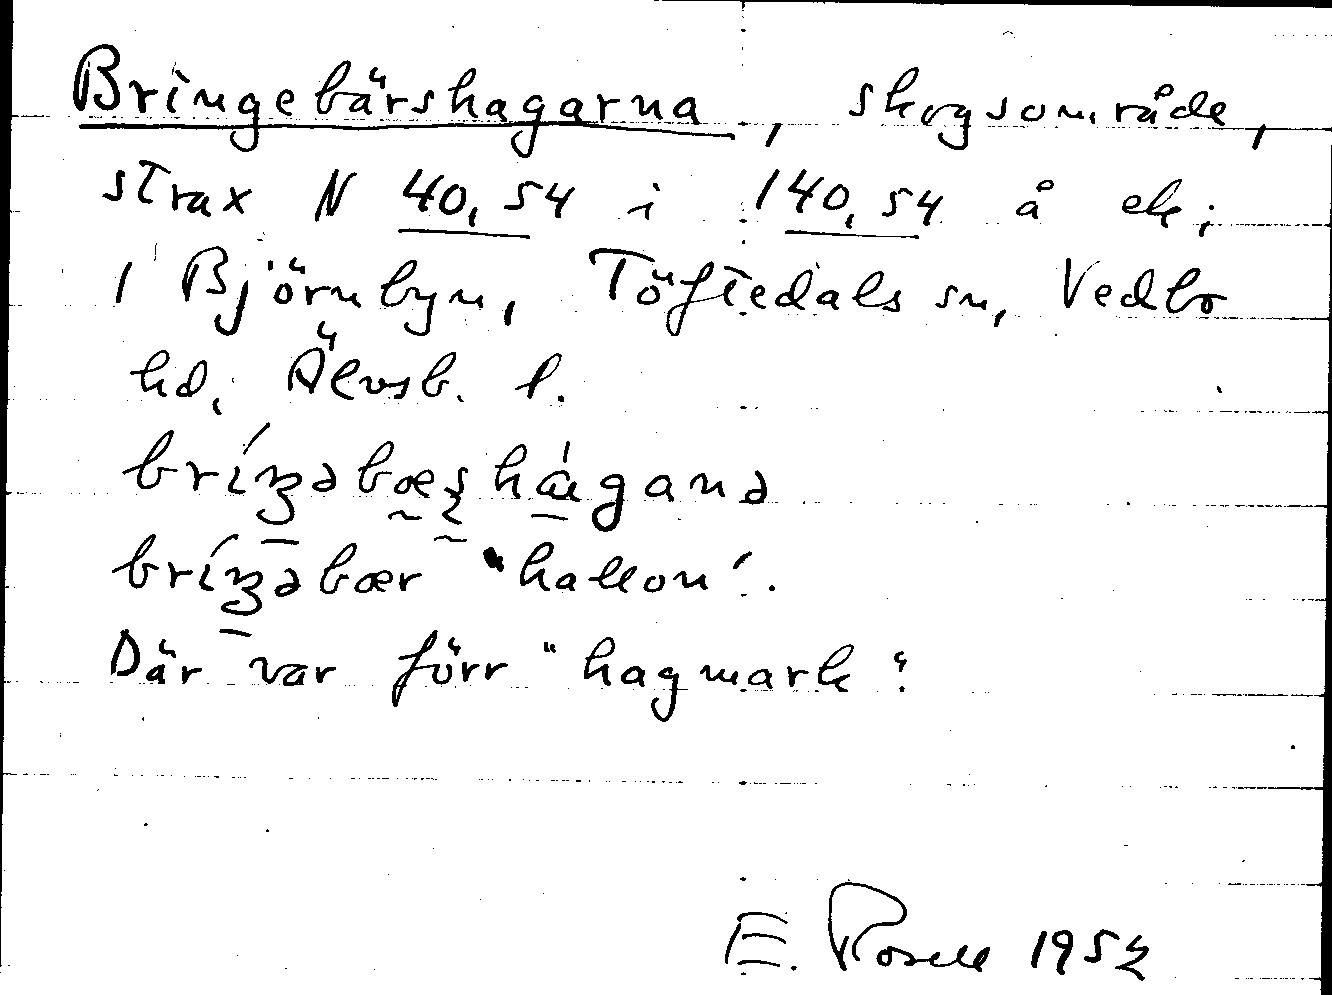 Bringebärshagarna, skogsområde,
strax N 40,54 i 140,54 å ek;
i Björnbyn, Töftedals sn, Vedbo
hd, Älvsb. l.
bríŋəbæʂháganə
bríŋəbær "hallon".
Där var förr "hagmark".
E. Rosell 1952